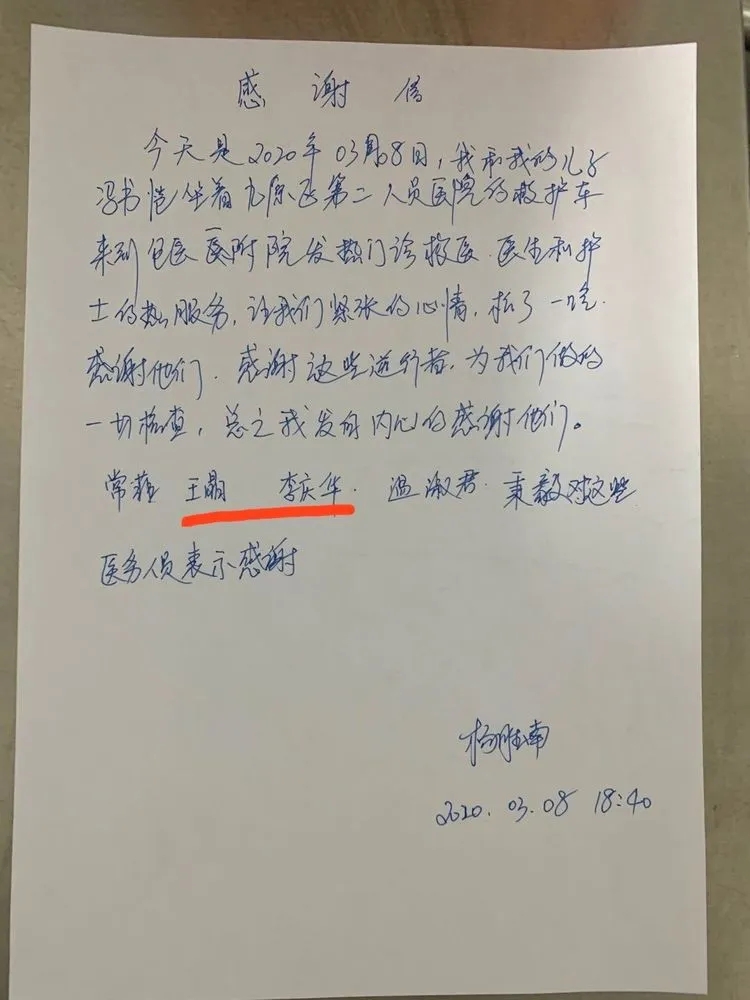 感谢信
今天是2020年03月08日，我和我的儿子
冯书恺坐着九原区第二人员医院的救护车
来到包医医附院发热门诊救医．医生和护
士的热服务，让我们紧张的心情，松了一些．
感谢他们．感谢这些逆行者，为我们做的
一切检查，总之我发自内心的感谢他们。
常菲 王晶 李庆华． 温淑君．秉毅对这些
医务人员表示感谢
杨胜南
2020.03.08 18:40